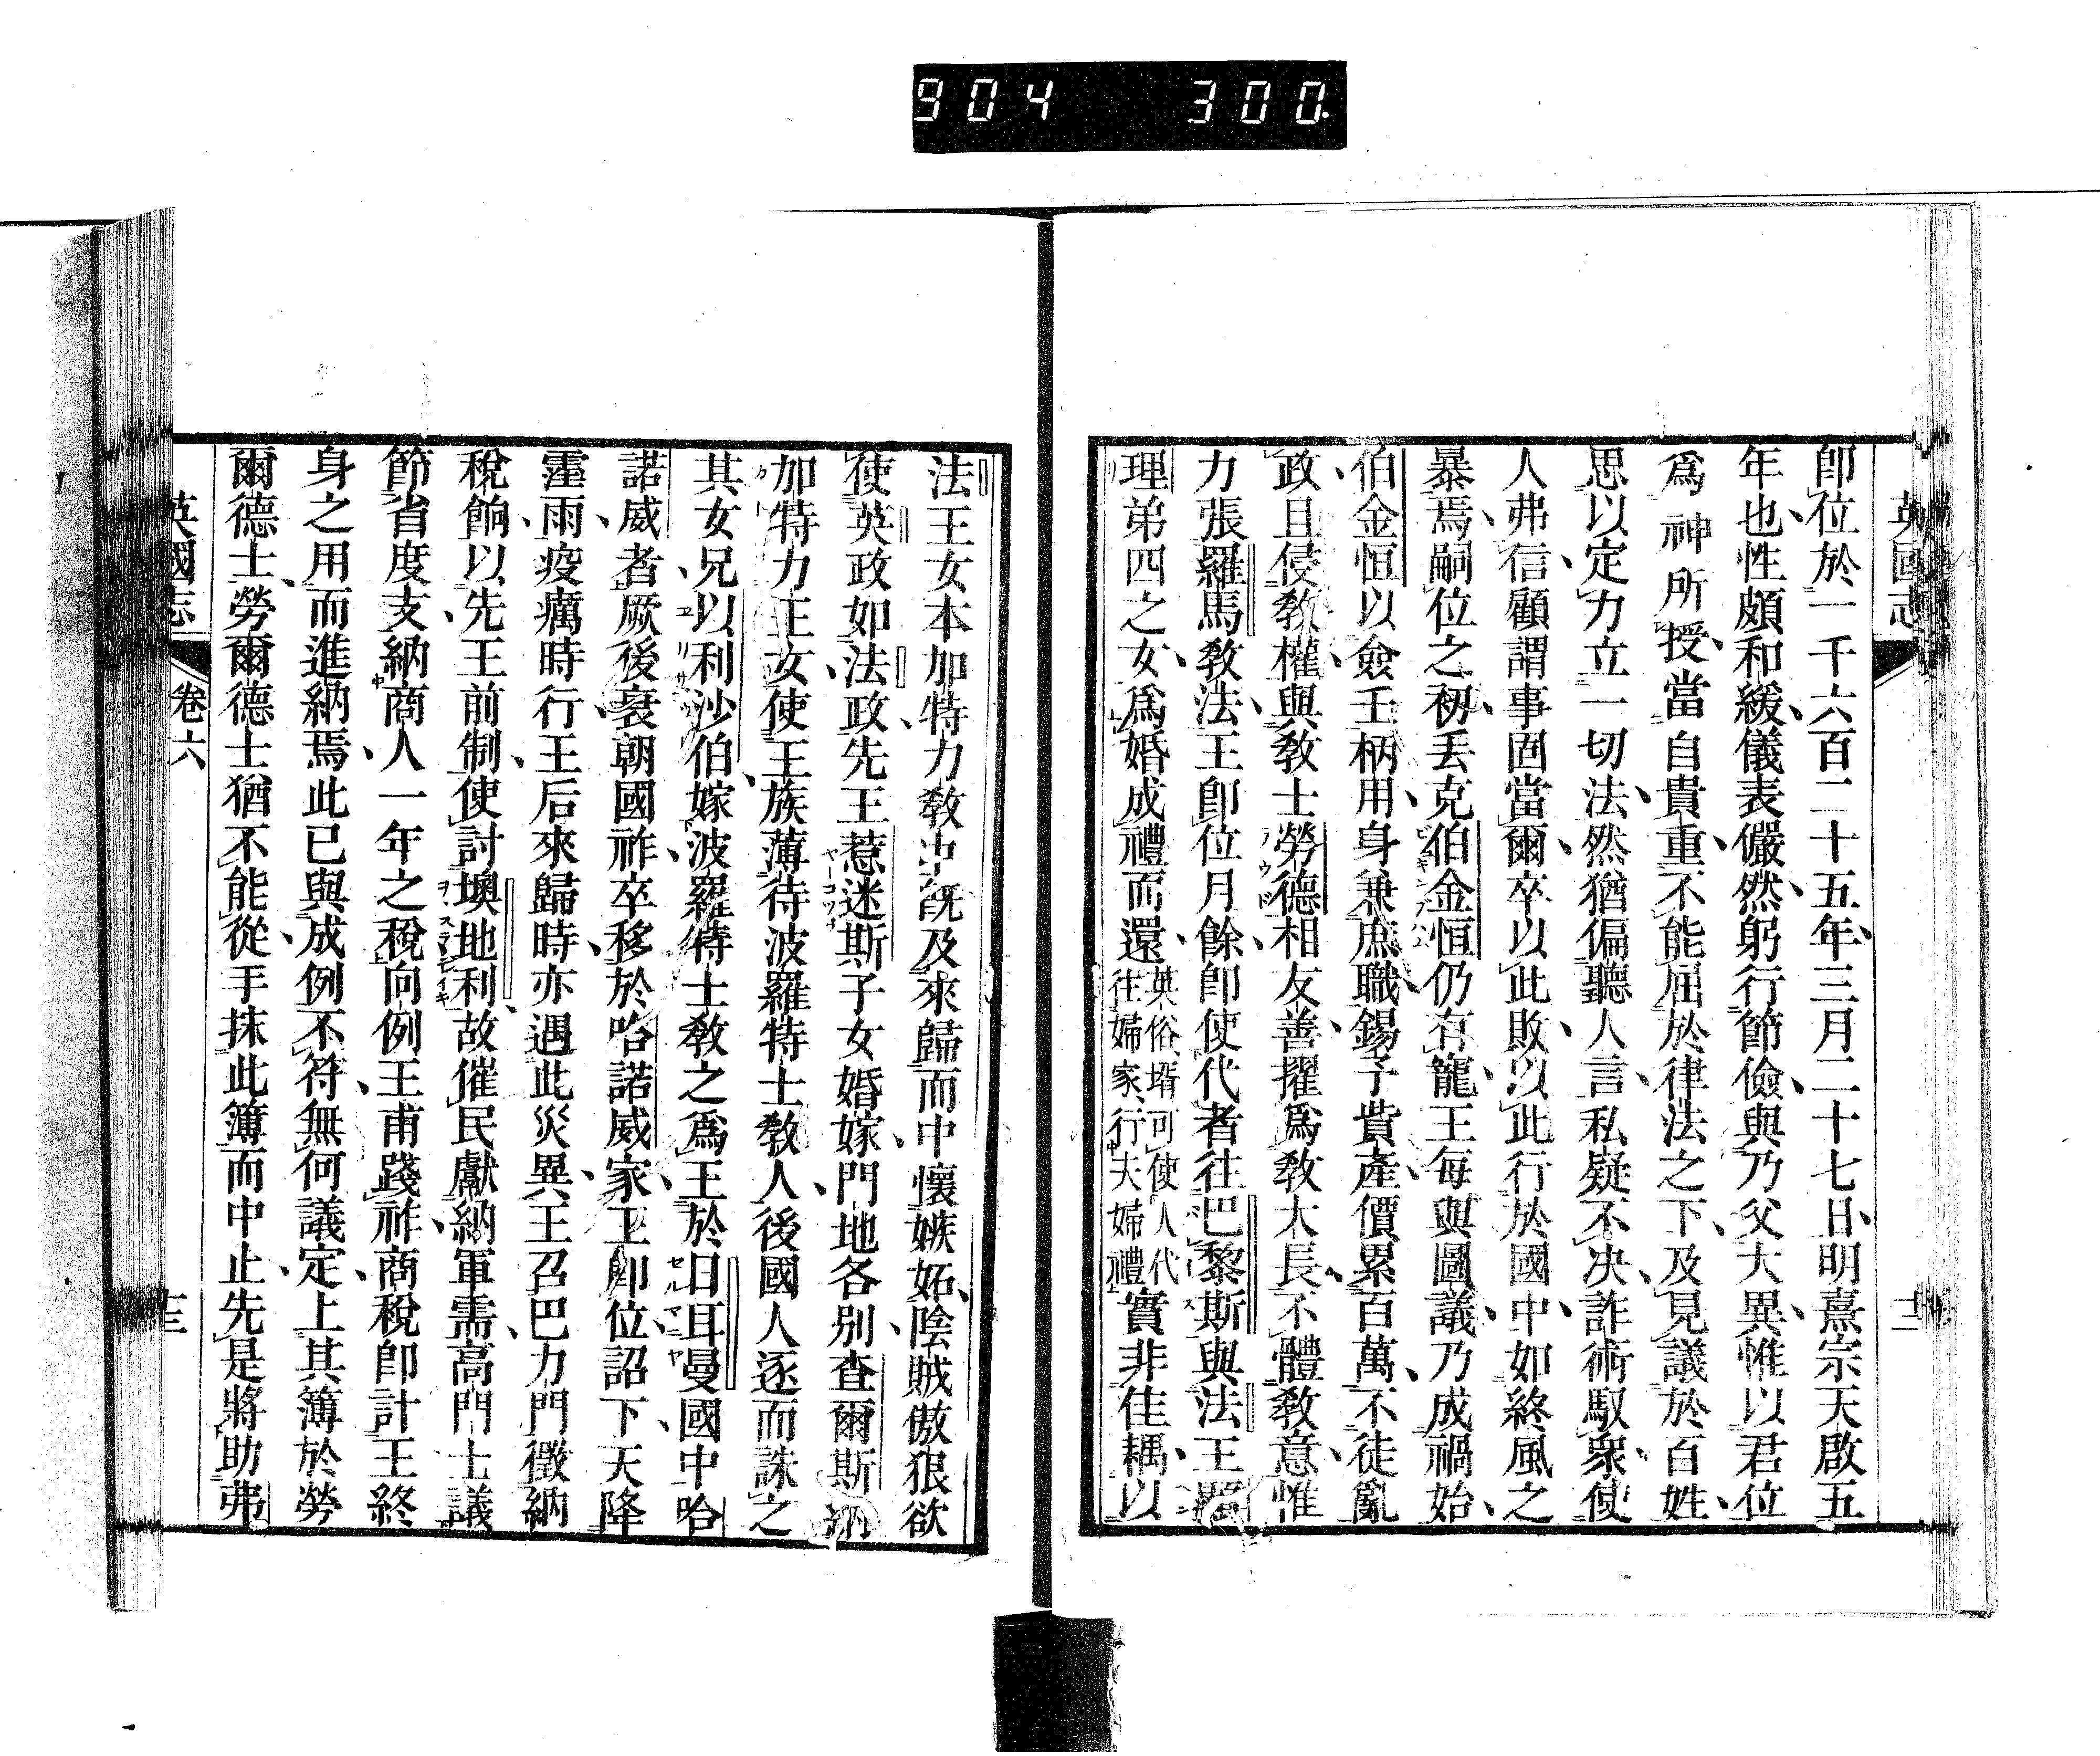 904 300
英國志
即位於一千六百二十五年三月二十七日明熹宗天啟五
年也性頗和緩儀表儼然躬行節儉與乃父大異惟以君位
爲神所授當自貴重不能屈於律法之下及見議於百姓
思以定力立一切法然猶偏聽人言私疑不决詐術馭衆使
人弗信顧謂事固當爾卒以此敗以此行於國中如終風之
暴焉嗣位之初丢克伯金恒仍有寵王每與圖議乃成禍始
伯金恒以僉壬柄用身兼庶職錫予貲產價累百萬不徒亂
政且侵敎權與敎士勞德相友善擢爲敎大長不體敎意惟
力張羅馬敎法王即位月餘即使代者往巴黎斯與法王顯
理弟四之女爲婚成禮而還英俗壻可使人代往婦家行夫婦禮實非佳耦以
法王女本加特力敎中既及來歸而中懷嫉妬陰賊傲狠欲
使英政如法政先王惹迷斯子女婚嫁門地各别查爾斯納
加特力王女使王族薄待波羅特士敎人後國人逐而誅之
其女兄以利沙伯嫁波羅特士敎之爲王於日耳曼國中哈
諾威者厥後衰朝國祚卒移於哈諾威家王即位詔下天降
霪雨疫癘時行王后來歸時亦遇此災異王召巴力門徵納
稅餉以先王前制使討墺地利故催民獻納軍需高門士議
節省度支納商人一年之稅向例王甫踐祚商稅即計王終
身之用而進納焉此已與成例不符無何議定上其簿於勞
爾德士勞爾德士猶不能從手抹此簿而中止先是將助弗
英國志 卷六